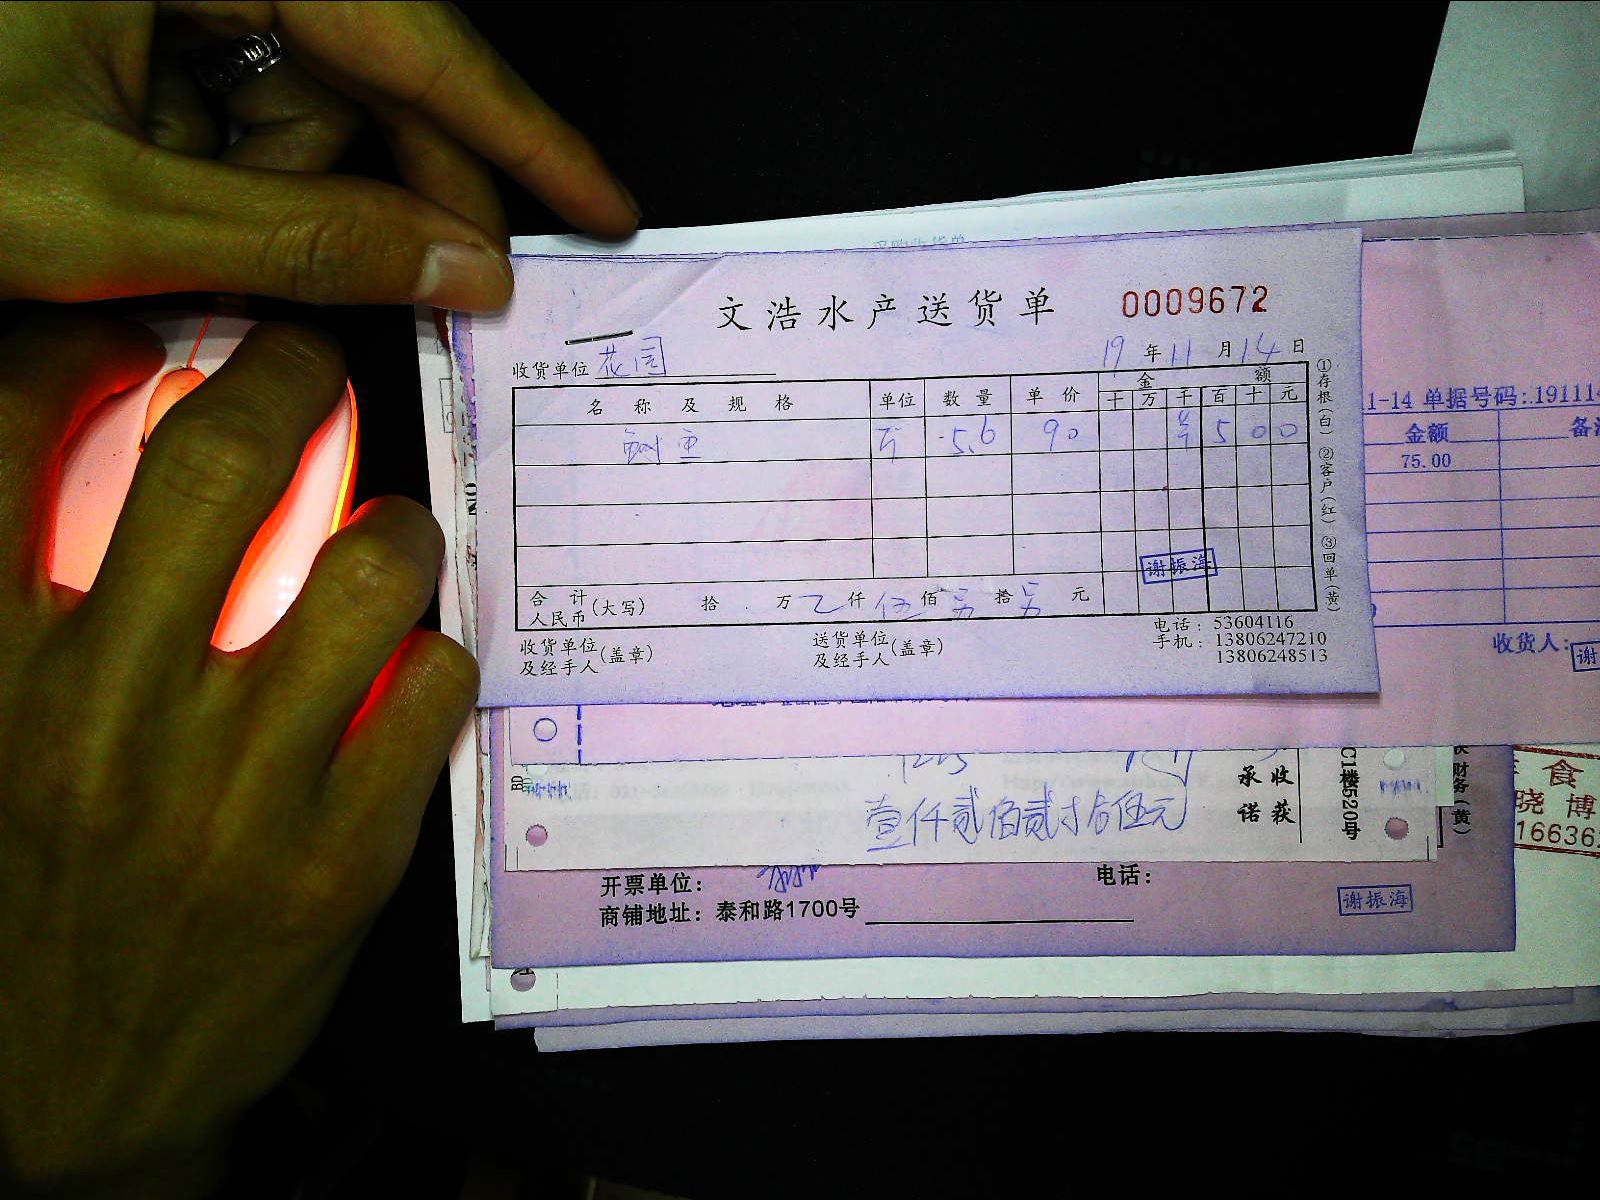 文浩水产送货单 0009672
收货单位 花园 19年11月14日
名称及规格 单位 数量 单价 金额
十 万 千 百 十 元
鲥鱼 斤 5.6 90 ¥ 5 0 0
谢振海
合计人民币(大写) 拾 万 仟 伍佰 拾 元
收货单位及经手人(盖章) 送货单位及经手人(盖章)
电话：53604116
手机：13806247210
13806248513
①存根(白) ②客户(红) ③回单(黄)
1-14 单据号码:.191114
金额 备
75.00
收货人: 谢
壹仟贰佰贰拾伍元
承诺 收获
C1楼520号
财务(黄)
食
晓博
16636
开票单位: 电话:
商铺地址: 泰和路1700号
谢振海